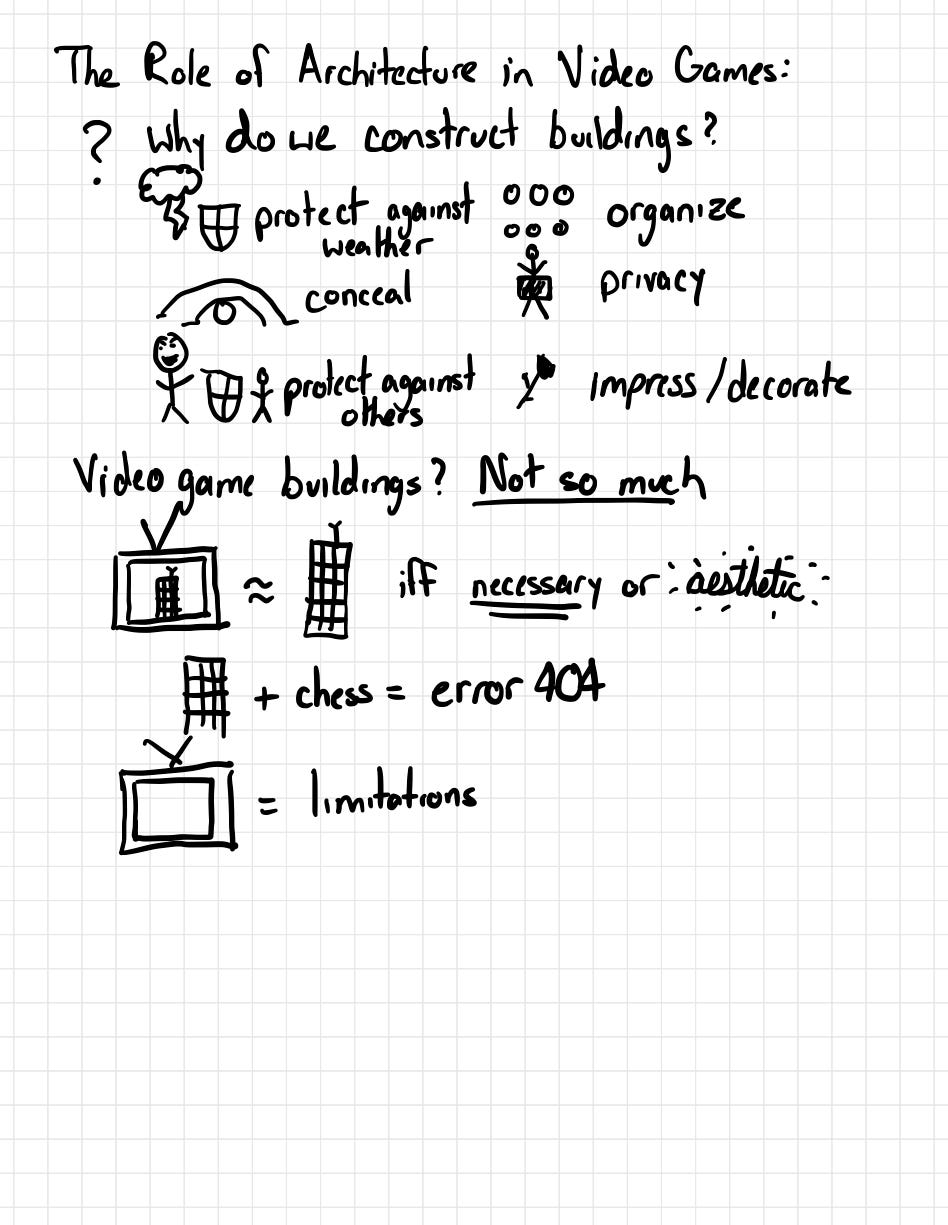 The Role of Architecture in Video Games:
? Why do we construct buildings?
protect against weather
organize
conceal
privacy
protect against others
impress/decorate
Video game buildings? Not so much
≈ iff necessary or aesthetic
+ chess = error 404
= limitations